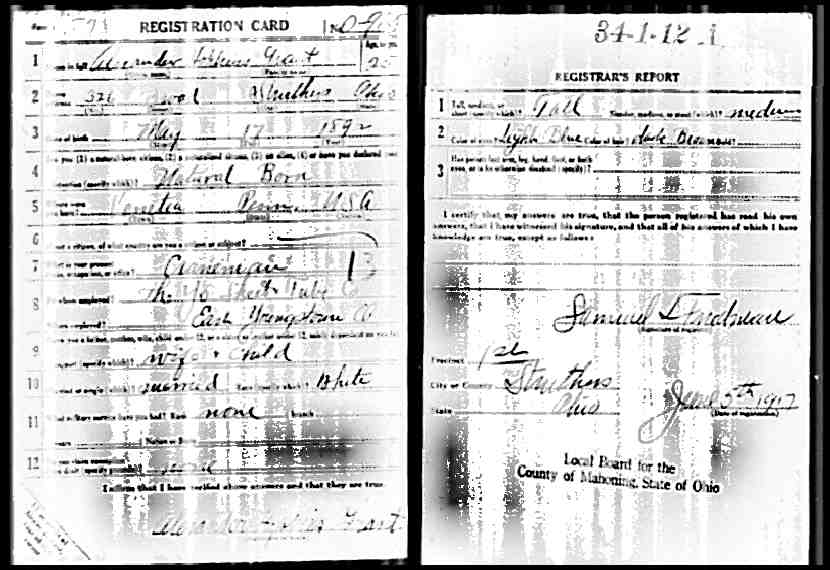 REGISTRATION CARD No
1 Name in full Alexander Hopkins Grant Age, in yrs.
2 Wood Struthers Ohio
3 Date of birth May 17 1892
4 Are you (1) a natural-born citizen, (2) a naturalized citizen, (3) an alien, (4) or have you declared your
intention (specify which)? Natural Born
5 Where were you born? Venetia Penn U.S.A
6 If not a citizen, of what country are you a citizen or subject?
7 What is your present trade, occupation, or office? Craneman 13
8 By whom employed? The Sheet & Tube Co
Where employed? East Youngstown O
9 Have you a father, mother, wife, child under 12, or a sister or brother under 12, solely dependent on you for
support (specify which)? wife & child
10 Married or single (which)? married Race (specify which)? White
11 What military service have you had? Rank none branch
years Nation or State
12 Do you claim exemption from draft (specify grounds)?
I affirm that I have verified above answers and that they are true.
Alexander Hopkins Grant
34-1-12
REGISTRAR'S REPORT
1 Tall, medium, or short (specify which)? Tall Slender, medium, or stout (which)? medium
2 Color of eyes? Light Blue Color of hair? dark Brown Bald?
3 Has person lost arm, leg, hand, foot, or both
eyes, or is he otherwise disabled (specify)?
I certify that my answers are true, that the person registered has read his own
answers, that I have witnessed his signature, and that all of his answers of which I have
knowledge are true, except as follows:
Samuel
(Signature of registrar)
Precinct 1st
City or County Struthers
State Ohio
June 5th 1917
(Date of registration)
Local Board for the
County of Mahoning, State of Ohio